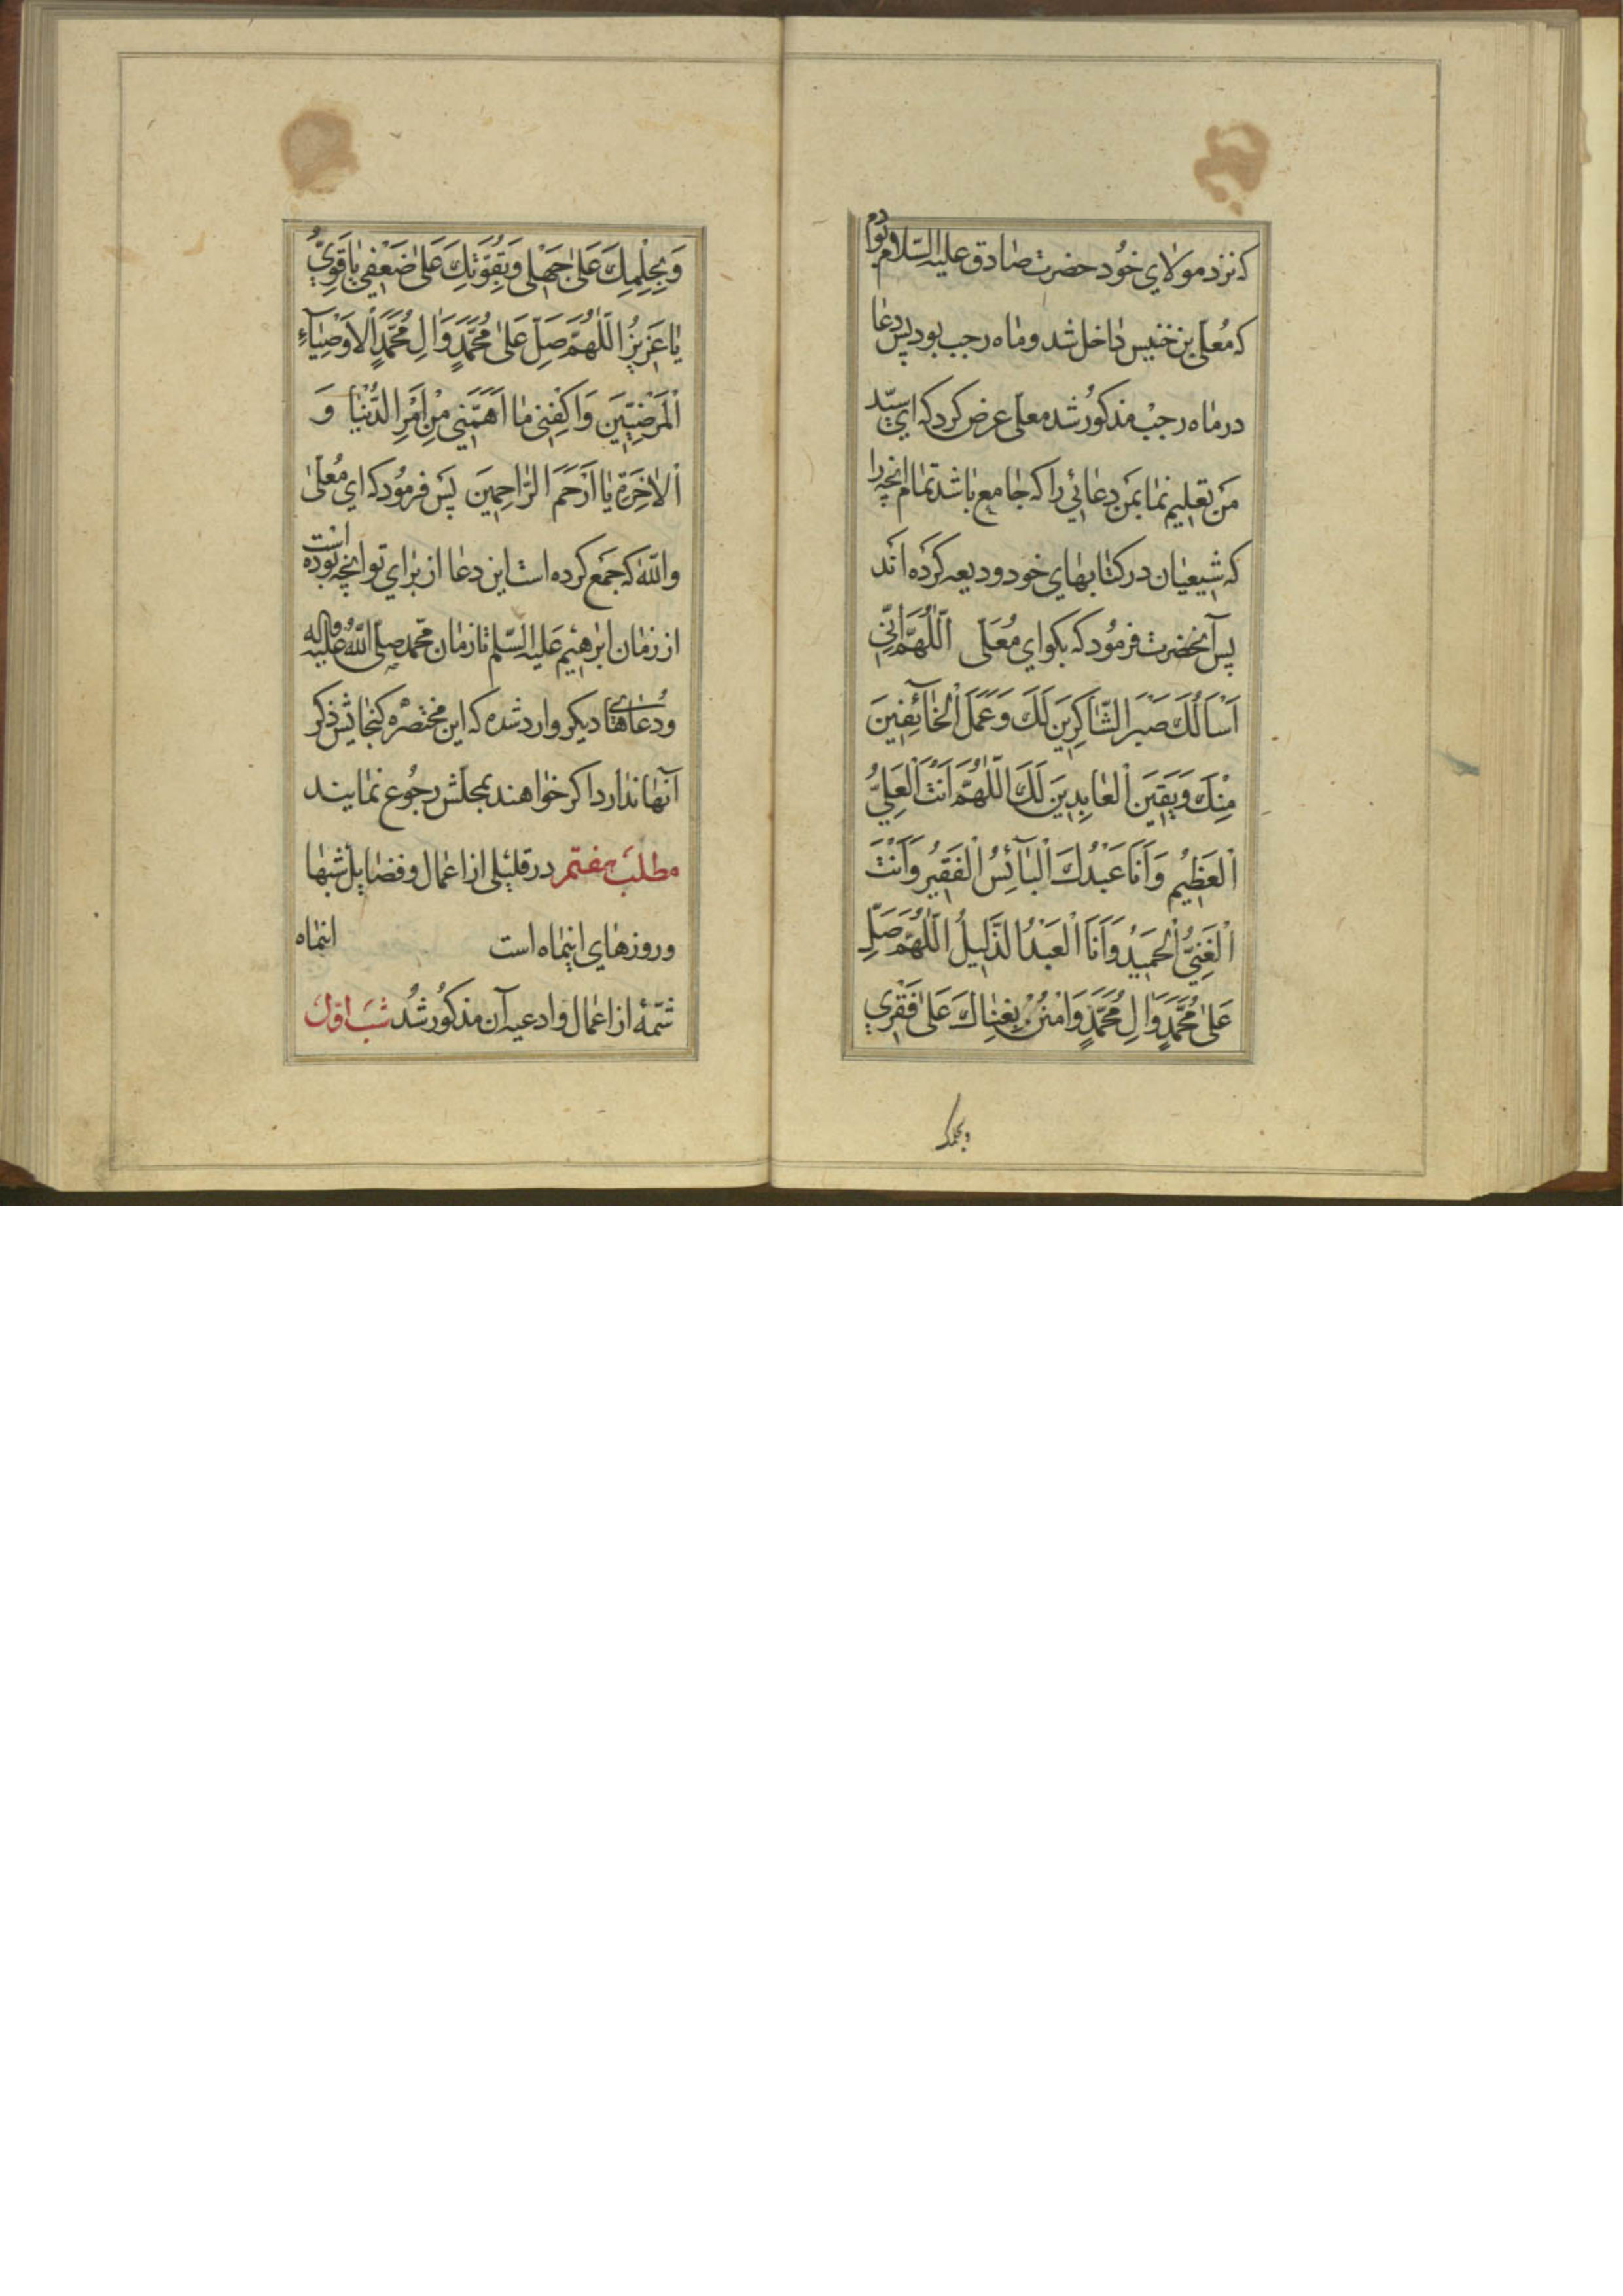 که نزد مولای خود حضرت صادق علیه السلام بودم
که معلی بن خنیس داخل شد و ماه رجب بود پس دعا
در ماه رجب مذکور شد معلی عرض کرد که ای سید
من تعلیم نما بمن دعائی را که جامع باشد تمام انچه را
که شیعیان در کتابهای خود ودیعه کرده اند
پس آنحضرت فرمود که بکو ای معلی اَللّٰهُمَّ اِنّی
اَسْاَلُكَ صَبْرَ الشّاکِرینَ لَكَ وَعَمَلَ الْخآئِفینَ
مِنْكَ وَیَقینَ الْعابِدینَ لَكَ اَللّٰهُمَّ اَنْتَ الْعَلِیُّ
الْعَظیمُ وَاَنَا عَبْدُكَ الْبآئِسُ الْفَقیرُ وَاَنْتَ
الْغَنِیُّ الْحَمیدُ وَاَنَا الْعَبْدُ الذَّلیلُ اَللّٰهُمَّ صَلِّ
عَلیٰ مُحَمَّدٍ وَالِ مُحَمَّدٍ وَامْنُنْ بِغِناكَ عَلیٰ فَقْری
وبحلمك
وَبِحِلْمِكَ عَلیٰ جَهْلی وَبِقُوَّتِكَ عَلیٰ ضَعْفی یا قَوِیُّ
یا عَزیزُ اَللّٰهُمَّ صَلِّ عَلیٰ مُحَمَّدٍ وَالِ مُحَمَّدٍ الْاَوْصِیآءِ
الْمَرْضِیّینَ وَاکْفِنی ما اَهَمَّنی مِنْ اَمْرِ الدُّنْیا وَ
الْاٰخِرَةِ یا اَرْحَمَ الرّاحِمینَ پس فرمود که ای معلی
والله که جمع کرده است این دعا از برای تو انچه بوده است
از زمان ابرهیم علیه السلم تا زمان محمد صلی الله علیه واله
ودعاهای دیکر وارد شده که این مختصره کنجایش ذکر
آنها ندارد اکر خواهند بمجلش رجوع نمایند
مطلب هفتم در قلیلی از اعمال و فضایل شبها
وروزهای اینماه است اینماه
شمهٔ از اعمال و ادعیه آن مذکور شد شب اول